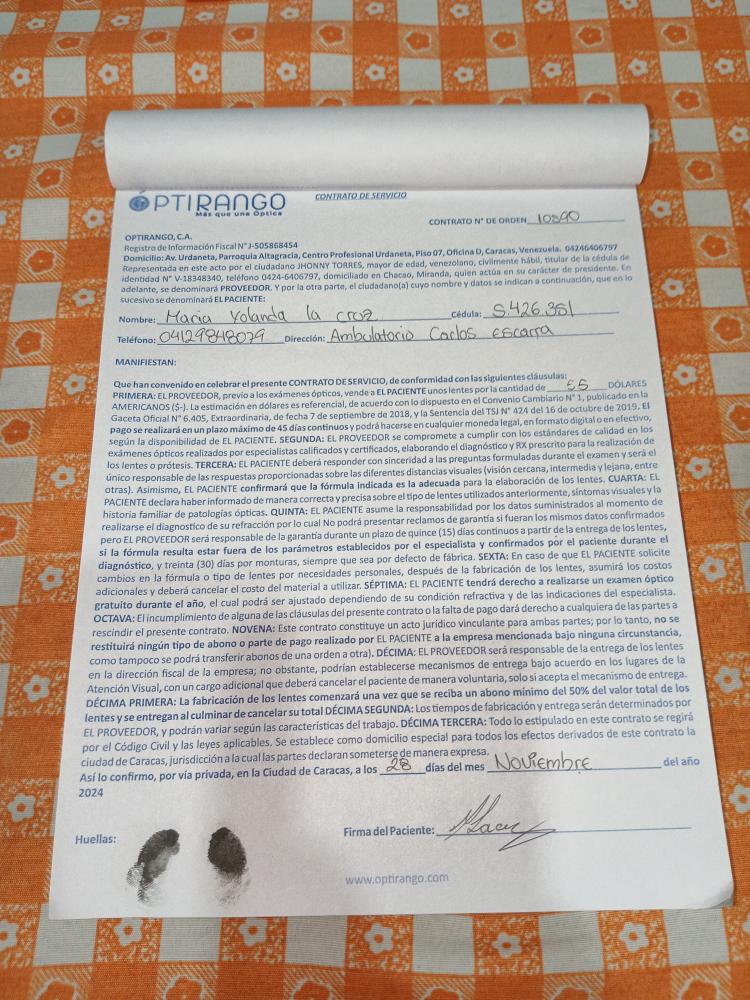 ÓPTIRANGO
Más que una Óptica
CONTRATO DE SERVICIO
CONTRATO N° DE ORDEN 10590
OPTIRANGO, C.A.
Registro de Información Fiscal N° J-505868454
Domicilio: Av. Urdaneta, Parroquia Altagracia, Centro Profesional Urdaneta, Piso 07, Oficina D, Caracas, Venezuela. 04246406797
Representada en este acto por el ciudadano JHONNY TORRES, mayor de edad, venezolano, civilmente hábil, titular de la cédula de
identidad N° V-18348340, teléfono 0424-6406797, domiciliado en Chacao, Miranda, quien actúa en su carácter de presidente. En
adelante, se denominará PROVEEDOR. Y por la otra parte, el ciudadano(a) cuyo nombre y datos se indican a continuación, que en lo
sucesivo se denominará EL PACIENTE:
Nombre: Maria Yolanda la cruz Cédula: 5.426.351
Teléfono: 04129848079 Dirección: Ambulatorio Carlos escarra
MANIFIESTAN:
Que han convenido en celebrar el presente CONTRATO DE SERVICIO, de conformidad con las siguientes cláusulas:
PRIMERA: EL PROVEEDOR, previo a los exámenes ópticos, vende a EL PACIENTE unos lentes por la cantidad de 55 DÓLARES
AMERICANOS ($-). La estimación en dólares es referencial, de acuerdo con lo dispuesto en el Convenio Cambiario N° 1, publicado en la
Gaceta Oficial N° 6.405, Extraordinaria, de fecha 7 de septiembre de 2018, y la Sentencia del TSJ N° 424 del 16 de octubre de 2019. El
pago se realizará en un plazo máximo de 45 días continuos y podrá hacerse en cualquier moneda legal, en formato digital o en efectivo,
según la disponibilidad de EL PACIENTE. SEGUNDA: EL PROVEEDOR se compromete a cumplir con los estándares de calidad en los
exámenes ópticos realizados por especialistas calificados y certificados, elaborando el diagnóstico y RX prescrito para la realización de
los lentes o prótesis. TERCERA: EL PACIENTE deberá responder con sinceridad a las preguntas formuladas durante el examen y será el
único responsable de las respuestas proporcionadas sobre las diferentes distancias visuales (visión cercana, intermedia y lejana, entre
otras). Asimismo, EL PACIENTE confirmará que la fórmula indicada es la adecuada para la elaboración de los lentes. CUARTA: EL
PACIENTE declara haber informado de manera correcta y precisa sobre el tipo de lentes utilizados anteriormente, síntomas visuales y la
historia familiar de patologías ópticas. QUINTA: EL PACIENTE asume la responsabilidad por los datos suministrados al momento de
realizarse el diagnostico de su refracción por lo cual No podrá presentar reclamos de garantía si fueran los mismos datos confirmados
pero EL PROVEEDOR será responsable de la garantía durante un plazo de quince (15) días continuos a partir de la entrega de los lentes,
si la fórmula resulta estar fuera de los parámetros establecidos por el especialista y confirmados por el paciente durante el
diagnóstico, y treinta (30) días por monturas, siempre que sea por defecto de fábrica. SEXTA: En caso de que EL PACIENTE solicite
cambios en la fórmula o tipo de lentes por necesidades personales, después de la fabricación de los lentes, asumirá los costos
adicionales y deberá cancelar el costo del material a utilizar. SÉPTIMA: EL PACIENTE tendrá derecho a realizarse un examen óptico
gratuito durante el año, el cual podrá ser ajustado dependiendo de su condición refractiva y de las indicaciones del especialista.
OCTAVA: El incumplimiento de alguna de las cláusulas del presente contrato o la falta de pago dará derecho a cualquiera de las partes a
rescindir el presente contrato. NOVENA: Este contrato constituye un acto jurídico vinculante para ambas partes; por lo tanto, no se
restituirá ningún tipo de abono o parte de pago realizado por EL PACIENTE a la empresa mencionada bajo ninguna circunstancia,
como tampoco se podrá transferir abonos de una orden a otra). DÉCIMA: EL PROVEEDOR será responsable de la entrega de los lentes
en la dirección fiscal de la empresa; no obstante, podrían establecerse mecanismos de entrega bajo acuerdo en los lugares de la
Atención Visual, con un cargo adicional que deberá cancelar el paciente de manera voluntaria, solo si acepta el mecanismo de entrega.
DÉCIMA PRIMERA: La fabricación de los lentes comenzará una vez que se reciba un abono mínimo del 50% del valor total de los
lentes y se entregan al culminar de cancelar su total DÉCIMA SEGUNDA: Los tiempos de fabricación y entrega serán determinados por
EL PROVEEDOR, y podrán variar según las características del trabajo. DÉCIMA TERCERA: Todo lo estipulado en este contrato se regirá
por el Código Civil y las leyes aplicables. Se establece como domicilio especial para todos los efectos derivados de este contrato la
ciudad de Caracas, jurisdicción a la cual las partes declaran someterse de manera expresa.
Así lo confirmo, por vía privada, en la Ciudad de Caracas, a los 28 días del mes Noviembre del año
2024
Huellas:
Firma del Paciente:
www.optirango.com